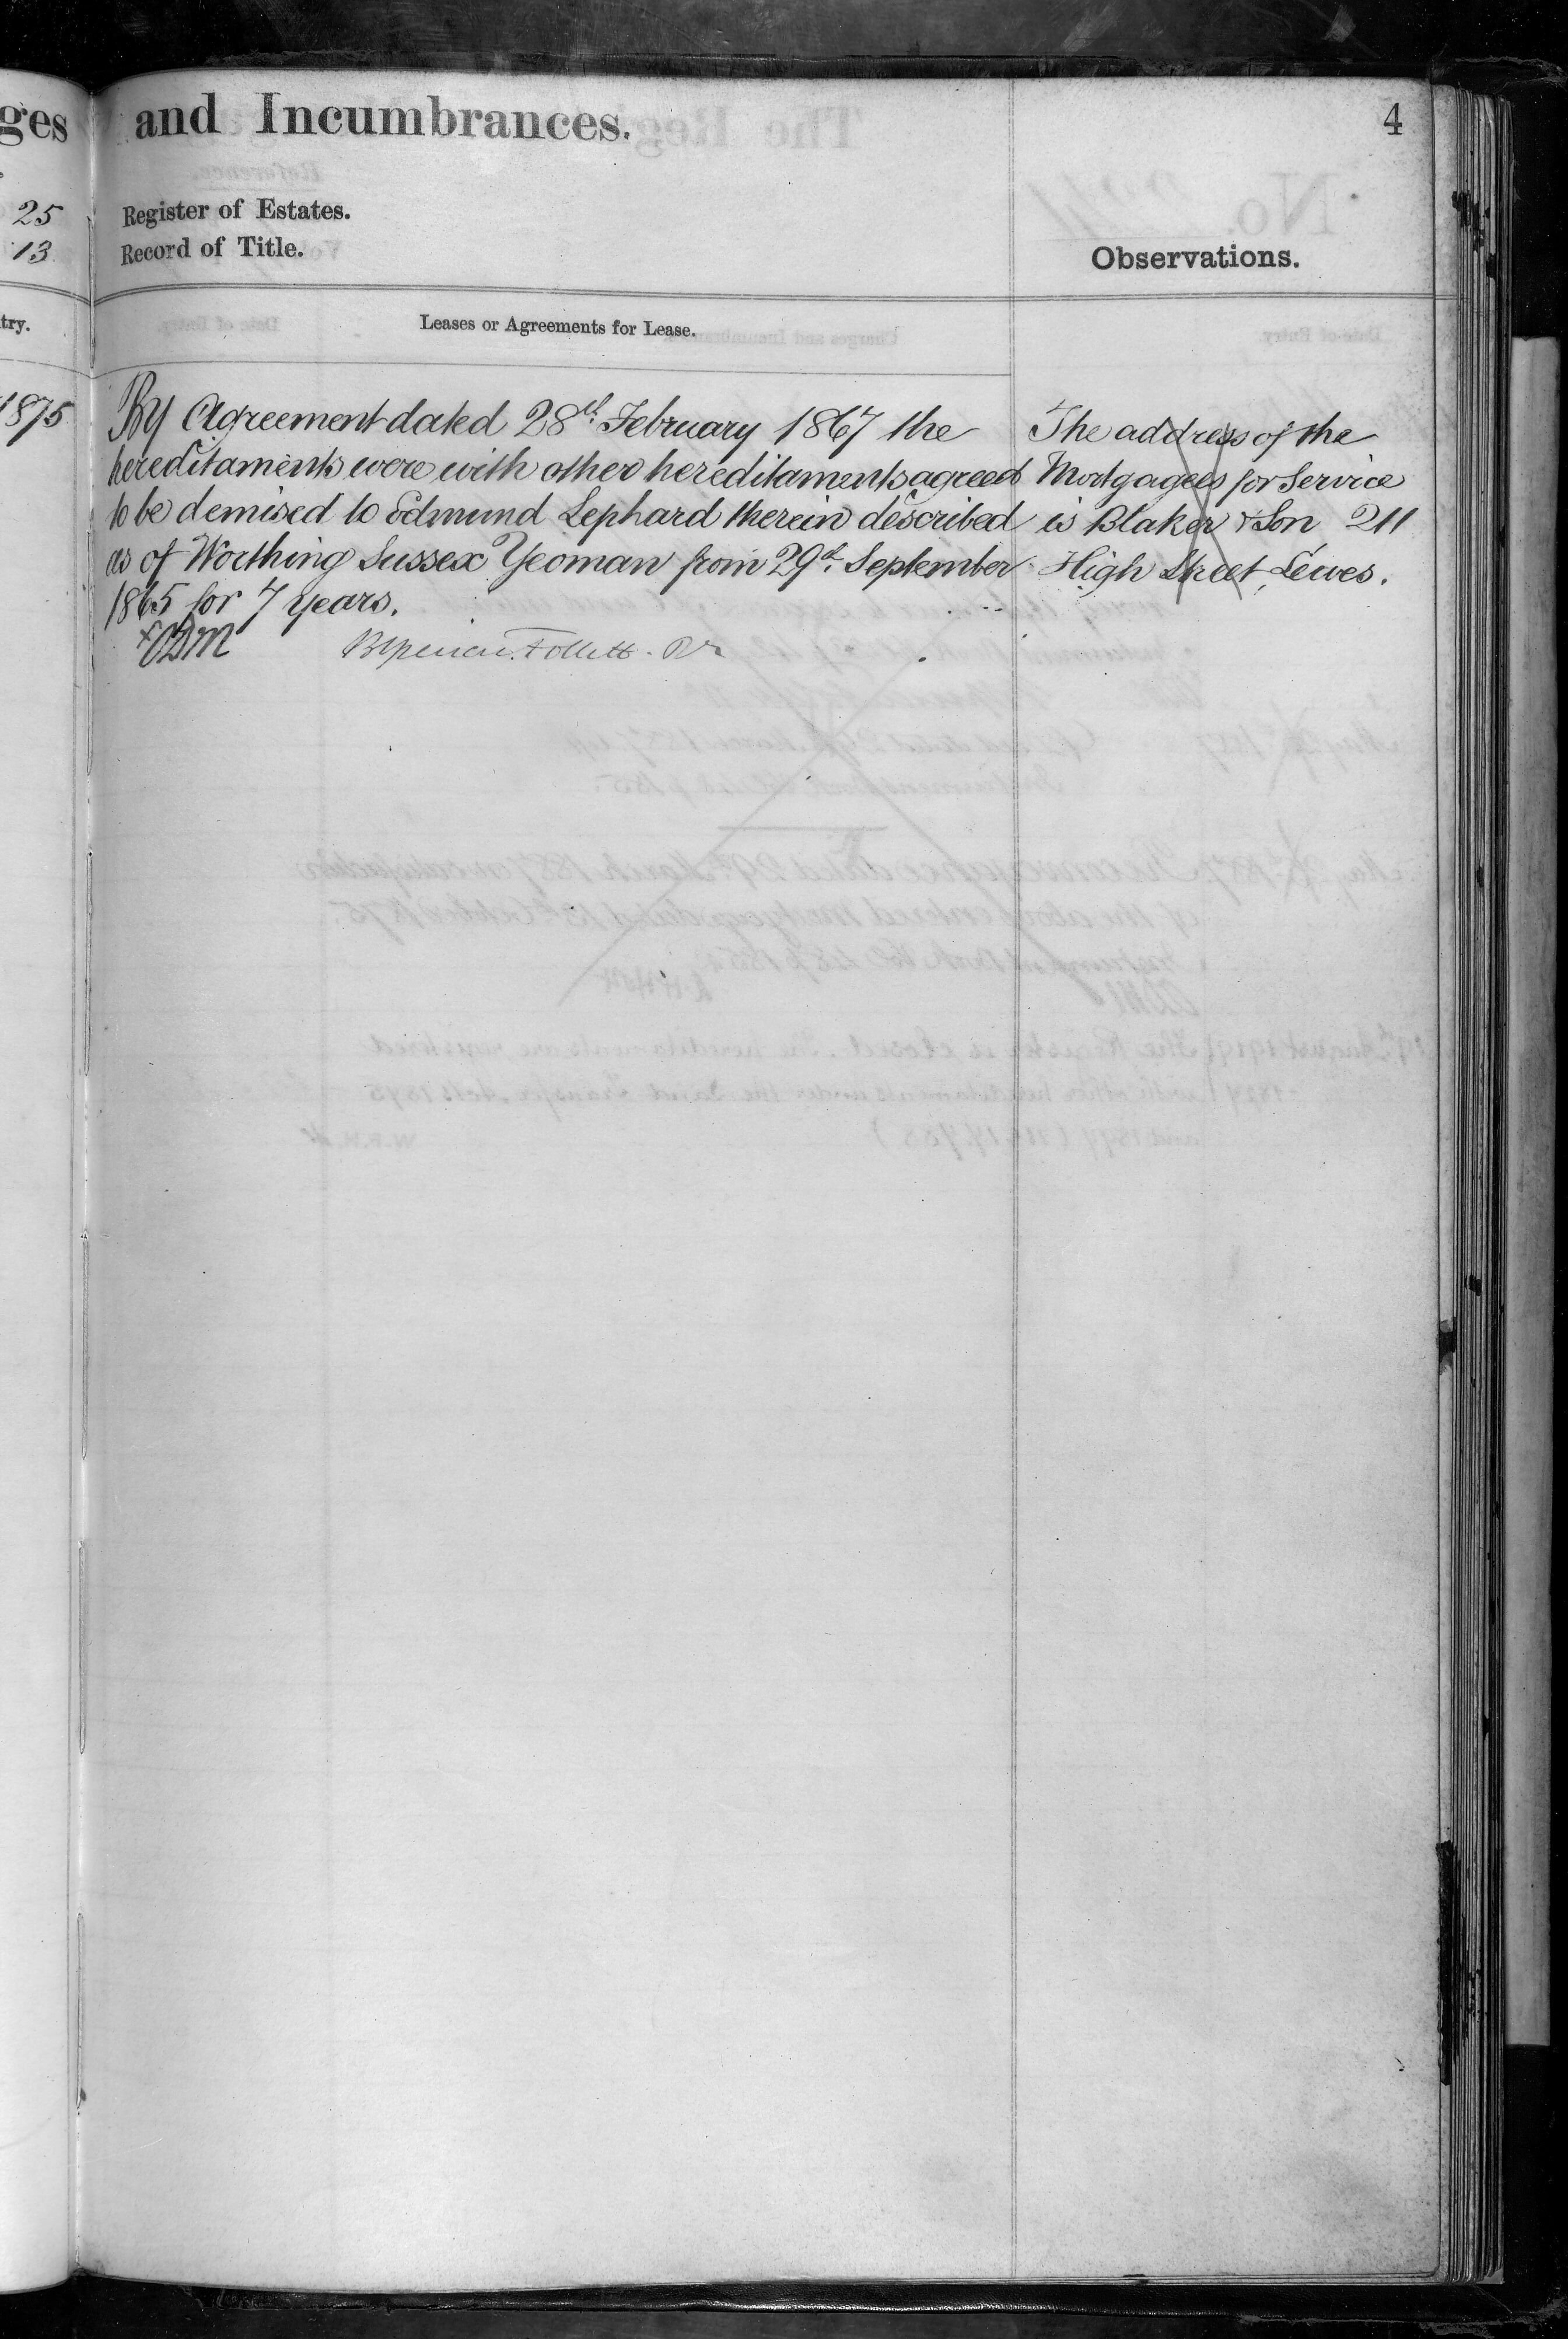 ges and Incumbrances.
4
25 Register of Estates.
13 Record of Title.
Observations.
try.
Leases or Agreements for Lease.
1875
By Agreement dated 28th February 1867 the
hereditaments were with other hereditaments agreed
to be demised to Edmund Lephard therein described
as of Worthing Sussex Yeoman from 29th September
1865 for 7 years.
The address of the
Mortgagees for Service
is Blaker & Son 211
High Street, Lewes.
Follett